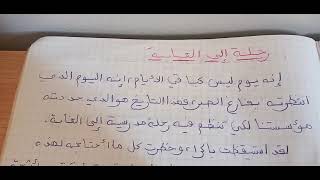 رحلة إلى الغابة
إنه يوم ليس كما في الأيام، إنه اليوم الذي
انتظرته بفارغ الصبر، فهذا التاريخ هو الذي حددته
مؤسستنا لكي تنظم فيه رحلة مدرسية إلى الغابة.
لقد استيقظت باكرا، وحضرت كل ما أحتاجه لهذه